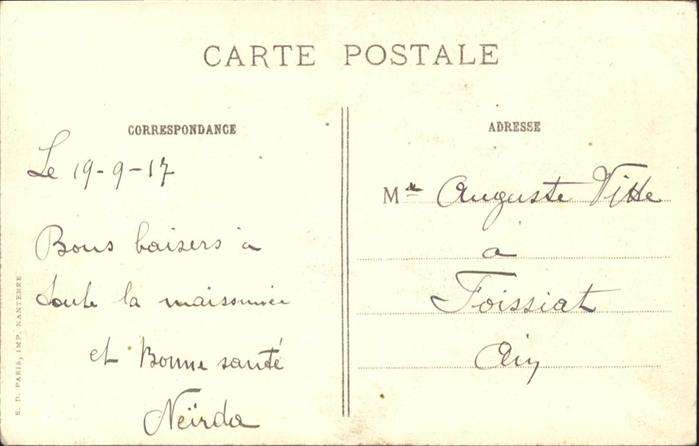 CARTE POSTALE
CORRESPONDANCE
Le 19-9-17
Bons baisers à
toute la maisonnée
et Bonne santé
Neïrda
ADRESSE
Mme Auguste Vitte
a
Foissiat
Ain
E. D. PARIS, IMP. NANTERRE